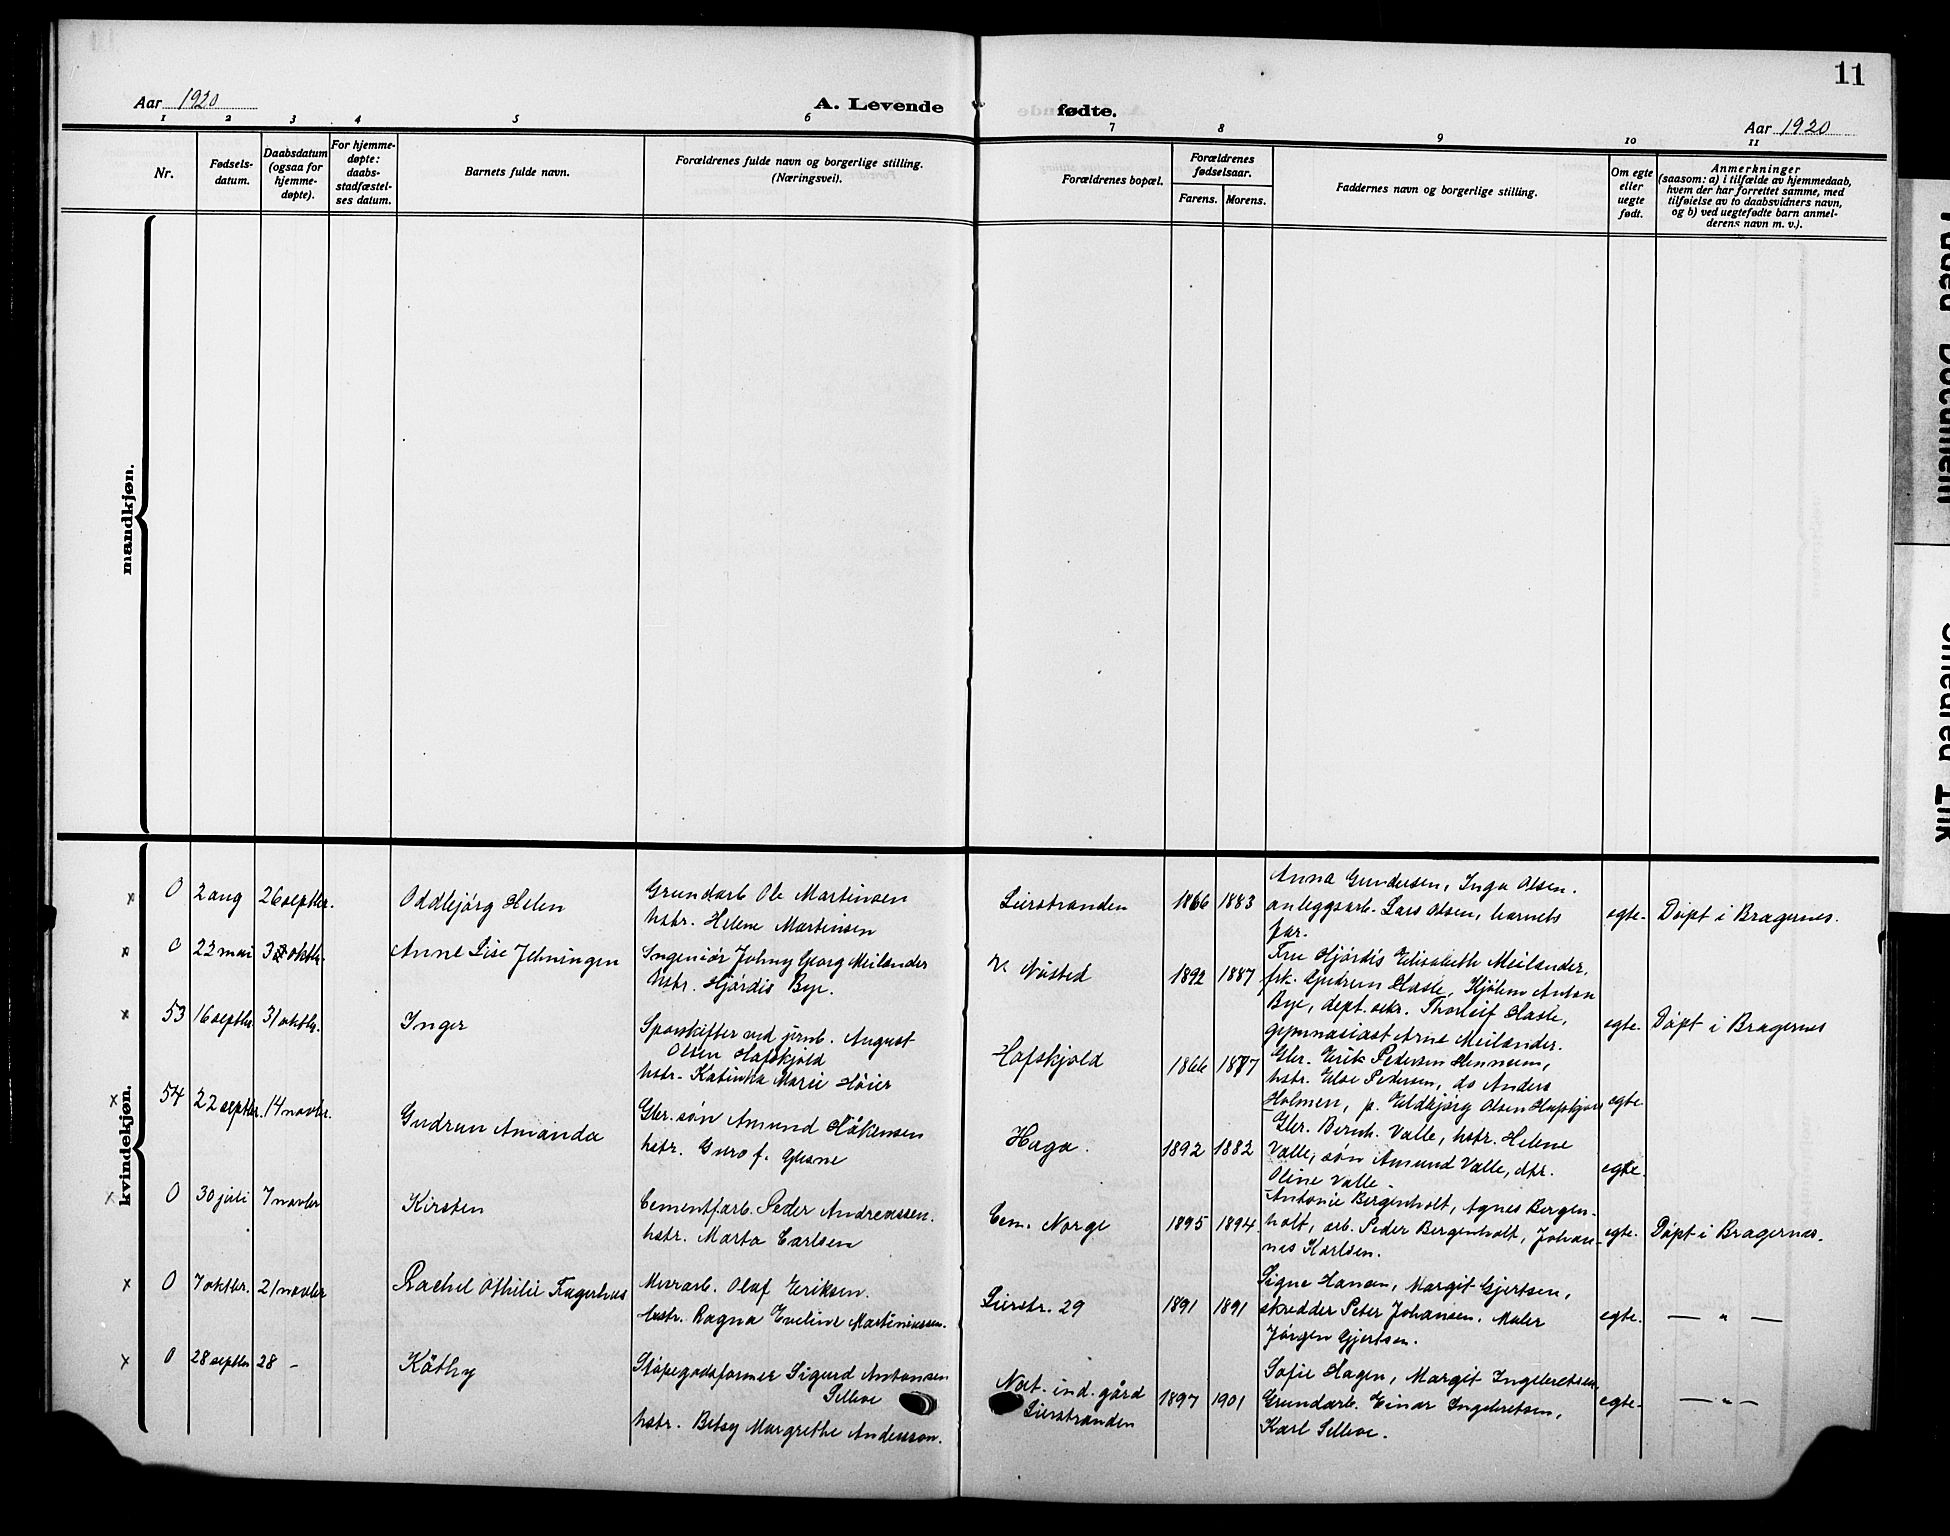 11
Aar 1920
A. Levende fødte.
Aar 1920
1 2 3 4 5 6 7 8 9 10 11
Nr.
Fødsels-
datum.
Daabsdatum
(ogsaa for
hjemme-
døpte).
For hjemme-
døpte:
daabs-
stadfæstel-
ses datum.
Barnets fulde navn.
Forældrenes fulde navn og borgerlige stilling.
(Næringsvei).
Forældrenes bopæl.
Forældrenes
fødselsaar.
Farens. Morens.
Faddernes navn og borgerlige stilling.
Om egte
eller
uegte
født.
Anmerkninger
(saasom: a) i tilfælde av hjemmedaab,
hvem der har forrettet samme, med
tilføielse av to daabsvidners navn,
og b) ved uegtefødte barn anmel-
derens navn m. v.).
mandkjøn.
kvindekjøn.
× 0 2 aug 26 septbr. Oddbjörg Helen
Grundarb. Ole Martinsen
hstr. Helene Martinsen
Lierstranden 1866 1883
Anna Gundersen, Inga Olsen.
anleggsarb. Lars Olsen, barnets
far.
egte- Döpt i Bragernes.
× 0 22 mai 3 oktbr. Anne Lise Jehningen
Ingeniör Johny Georg Meilander
hstr. Hjördis Bye.
N. Nösted 1892 1887
Fru Hjördis Elisabeth Meilander,
frk. Gudrun Hasle, Kjölem Anton
Bye, dept. sekr. Thorleif Hasle,
gymnasiast Arne Meilander.
egte- Döpt i Bragernes
× 53 16 septbr. 31 oktbr. Inger
Sporskifter ved jernb. August
Olsen Hafskjold
hstr. Katinka Marie Höier
Hofskjold 1866 1877
Gbr. Erik Pedersen Hennum,
hstr. Else Pedersen, do Anders
Holmen, p. Eldbjörg Olsen Hafskjold
egte
× 54 22 septbr. 14 novbr. Gudrun Amanda
Gbr. sön Amund Håkensen
hstr. Guro f. Glesne
Haga. 1892 1882
Gbr. Bernh. Valle, hstr. Helene
Valle, sön Amund Valle, dtr.
Oline Valle.
egte
× 0 30 juli 7 novbr Kirsten
Cementfarb. Peder Andreassen.
hstr. Marta Carlsen
Cem. Norge 1895 1894
Antonie Bergenholt, Agnes Bergen-
holt, arb. Peder Bergenholt, Johan-
nes Karlsen.
egte. Döpt i Bragernes.
× 0 7 oktbr. 21 novbr Rachel Othilie Fagerhus
Murarb. Olaf Eriksen.
hustr. Ragna Eveline Martiniussen.
Lierstr. 29 1891 1891
Signe Hansen, Margit Gjertsen,
skredder Peter Johansen, Maler
Jörgen Gjertsen.
egte. — " —
× 0 28 septbr 28 – Käthy
Stöpegodsformer Sigurd Antonsen
Selleve
hstr. Betsy Margrethe Anderson.
Nat. ind. gård
Lierstranden
1897 1901
Sofie Hagen, Margit Ingebretsen,
Grundarb. Einar Ingebretsen,
Karl Selleve.
egte- — " —